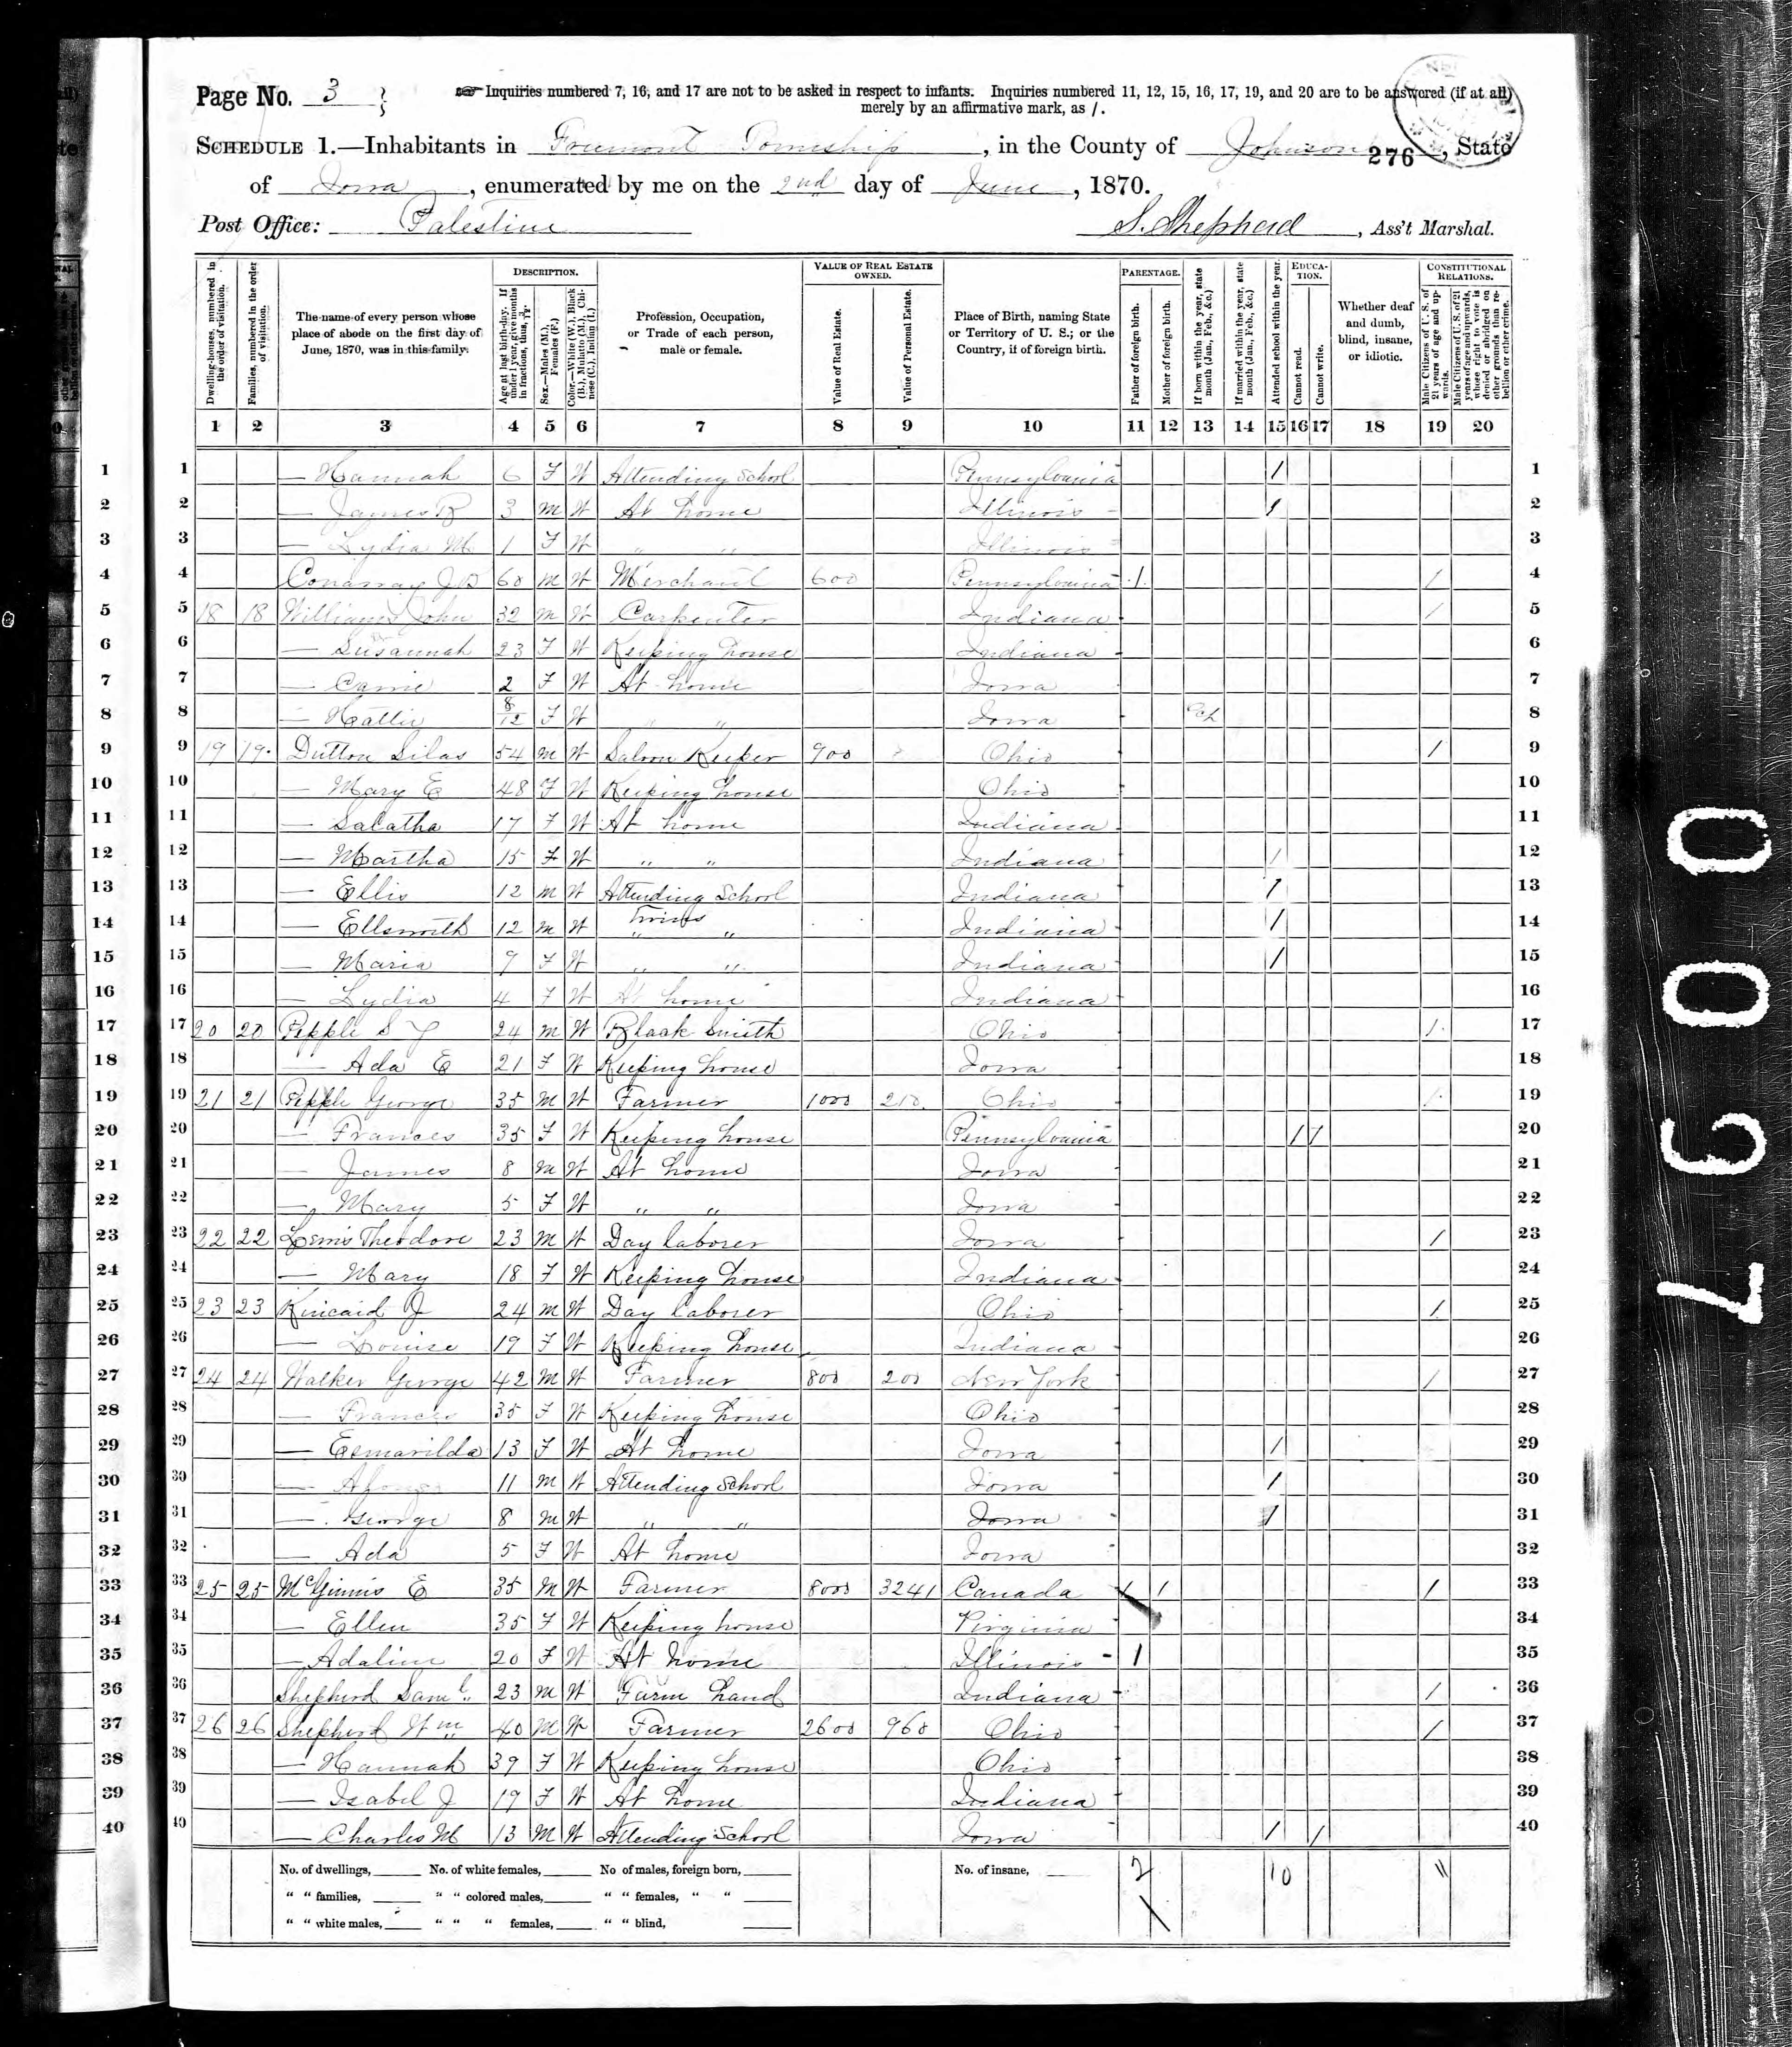 Page No. 3
Inquiries numbered 7, 16, and 17 are not to be asked in respect to infants. Inquiries numbered 11, 12, 15, 16, 17, 19, and 20 are to be answered (if at all)
merely by an affirmative mark, as /.
SCHEDULE 1.—Inhabitants in Freemont Township, in the County of Johnson, State
276
of Iowa, enumerated by me on the 2nd day of June, 1870.
Post Office: Palestine S. Shepherd, Ass't Marshal.
Dwelling-houses, numbered in the order of visitation.
Families, numbered in the order of visitation.
The name of every person whose place of abode on the first day of June, 1870, was in this family.
DESCRIPTION.
Age at last birth-day. If under 1 year, give months in fractions, thus, 3/12.
Sex.—Males (M.), Females (F.)
Color.—White (W.), Black (B.), Mulatto (M.), Chinese (C.), Indian (I.)
Profession, Occupation, or Trade of each person, male or female.
VALUE OF REAL ESTATE OWNED.
Value of Real Estate.
Value of Personal Estate.
Place of Birth, naming State or Territory of U. S.; or the Country, if of foreign birth.
PARENTAGE.
Father of foreign birth.
Mother of foreign birth.
If born within the year, state month (Jan., Feb., &c.)
If married within the year, state month (Jan., Feb., &c.)
Attended school within the year.
EDUCATION.
Cannot read.
Cannot write.
Whether deaf and dumb, blind, insane, or idiotic.
CONSTITUTIONAL RELATIONS.
Male Citizens of U. S. of 21 years of age and upwards.
Male Citizens of U. S. of 21 years of age and upwards, whose right to vote is denied or abridged on other grounds than rebellion or other crime.
1 2 3 4 5 6 7 8 9 10 11 12 13 14 15 16 17 18 19 20
1 — Hannah 6 F W Attending School Pennsylvania / 1
2 — James B 3 M W At home Illinois / 2
3 — Lydia M 1 F W " " Illinois 3
4 Conaway J B 60 M W Merchant 600 Pennsylvania / / 4
5 18 18 Williams John 32 M W Carpenter Indiana / 5
6 — Susannah 23 F W Keeping house Indiana 6
7 — Carrie 2 F W At home Iowa 7
8 — Hattie 8/12 F W " " Iowa 8
9 19 19 Dutton Silas 54 M W Saloon Keeper 900 Ohio / 9
10 — Mary E 48 F W Keeping house Ohio 10
11 — Salatha 17 F W At home Indiana 11
12 — Martha 15 F W " " Indiana / 12
13 — Ellis 12 M W Attending School Indiana / 13
14 — Ellsworth 12 M W Twins " " Indiana / 14
15 — Maria 9 F W " " Indiana / 15
16 — Lydia 4 F W At home Indiana 16
17 20 20 Pepple S Y 24 M W Black Smith Ohio / 17
18 — Ada E 21 F W Keeping house Iowa 18
19 21 21 Pepple George 35 M W Farmer 1000 210 Ohio / 19
20 — Frances 35 F W Keeping house Pennsylvania / / 20
21 — James 8 M W At home Iowa 21
22 — Mary 5 F W " " Iowa 22
23 22 22 Lewis Theodore 23 M W Day laborer Iowa / 23
24 — Mary 18 F W Keeping house Indiana 24
25 23 23 Kincaid J 24 M W Day laborer Ohio / 25
26 — Louise 19 F W Keeping house Indiana 26
27 24 24 Walker George 42 M W Farmer 800 200 New York / 27
28 — Frances 35 F W Keeping house Ohio 28
29 — Esmarilda 13 F W At home Iowa / 29
30 — 11 M W Attending School Iowa / 30
31 — George 8 M W " " Iowa / 31
32 — Ada 5 F W At home Iowa 32
33 25 25 McGinnis E 35 M W Farmer 8000 3241 Canada / / / 33
34 — Ellen 35 F W Keeping house Virginia 34
35 — Adaline 20 F W At home Illinois / 35
36 Shepherd Saml. 23 M W Farm hand Indiana / 36
37 26 26 Shepherd Wm 40 M W Farmer 2600 960 Ohio / 37
38 — Hannah 39 F W Keeping house Ohio 38
39 — Isabel J 19 F W At home Indiana 39
40 — Charles M 13 M W Attending School Iowa / / 40
No. of dwellings, No. of white females, No of males, foreign born, No. of insane, 2 10 11
" " families, " " colored males, " " females, " "
" " white males, " " " females, " " blind,
7 6 0 0